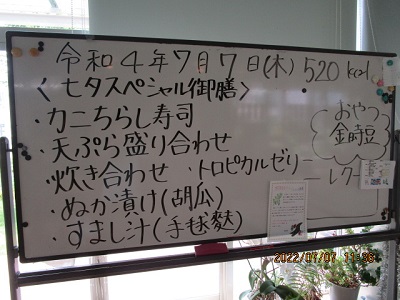 令和4年7月7日(木) 520 kcal
〈七夕スペシャル御膳〉
・カニちらし寿司
・天ぷら盛り合わせ
・炊き合わせ ・トロピカルゼリー
・ぬか漬け(胡瓜)
・すまし汁(手毬麩)
おやつ
金時豆
2022/07/07